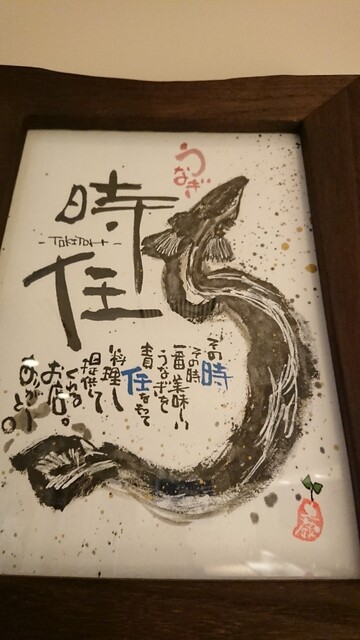 うなぎ
時任
-TOKITOH-
その時
その時
一番美味しい
うなぎを
責任をもって
料理し
提供して
くれる
お店。
ありがとう。